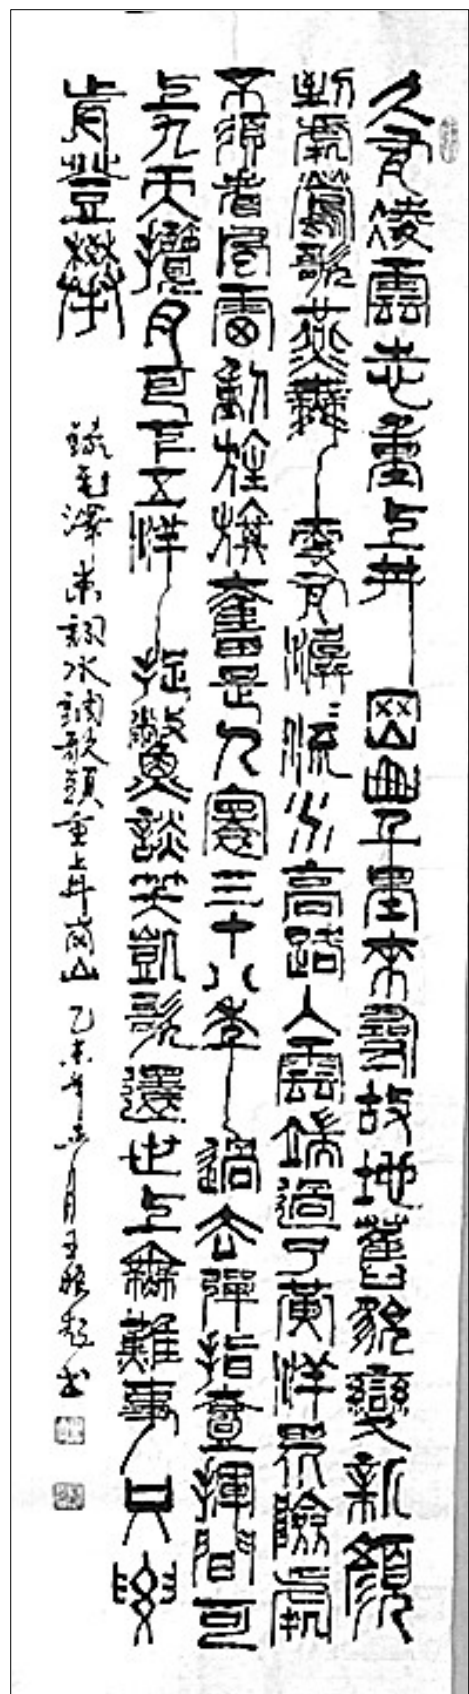 久有凌雲志重上井岡山千里來尋故地舊貌變新顏
到處鶯歌燕舞更有潺〻流水高路入雲端過了黃洋界險處
不須看風雷動旌旗奮是人寰三十八年過去彈指壹揮間可
上九天攬月可下五洋捉鱉談笑凱歌還世上無難事只要
肯登攀
錄毛澤東詞水調歌頭重上井岡山 乙未年六月王書